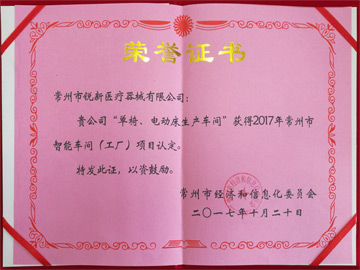 荣誉证书
常州市锐新医疗器械有限公司：
贵公司“单椅、电动床生产车间”获得2017年常州市
智能车间（工厂）项目认定。
特发此证，以资鼓励。
常州市经济和信息化委员会
二〇一七年十月二十日